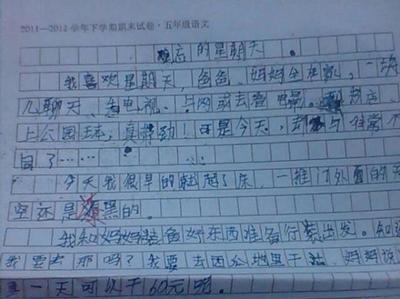 2011—2012学年下学期期末试卷·五年级语文
的星期天。
我喜欢星期天，爸爸、妈妈全在家，一块
儿聊天、看电视、上网或去看电影。到
上公园玩，真带劲！可是今天，却与往常不
同了……
今天我很早的就起了床，一推门外面的天
空还是黑的。
我和妈妈准备好东西准备行装出发。知道
我要去那吗？我要去田地里干，妈妈说
一天可以干60元呢。